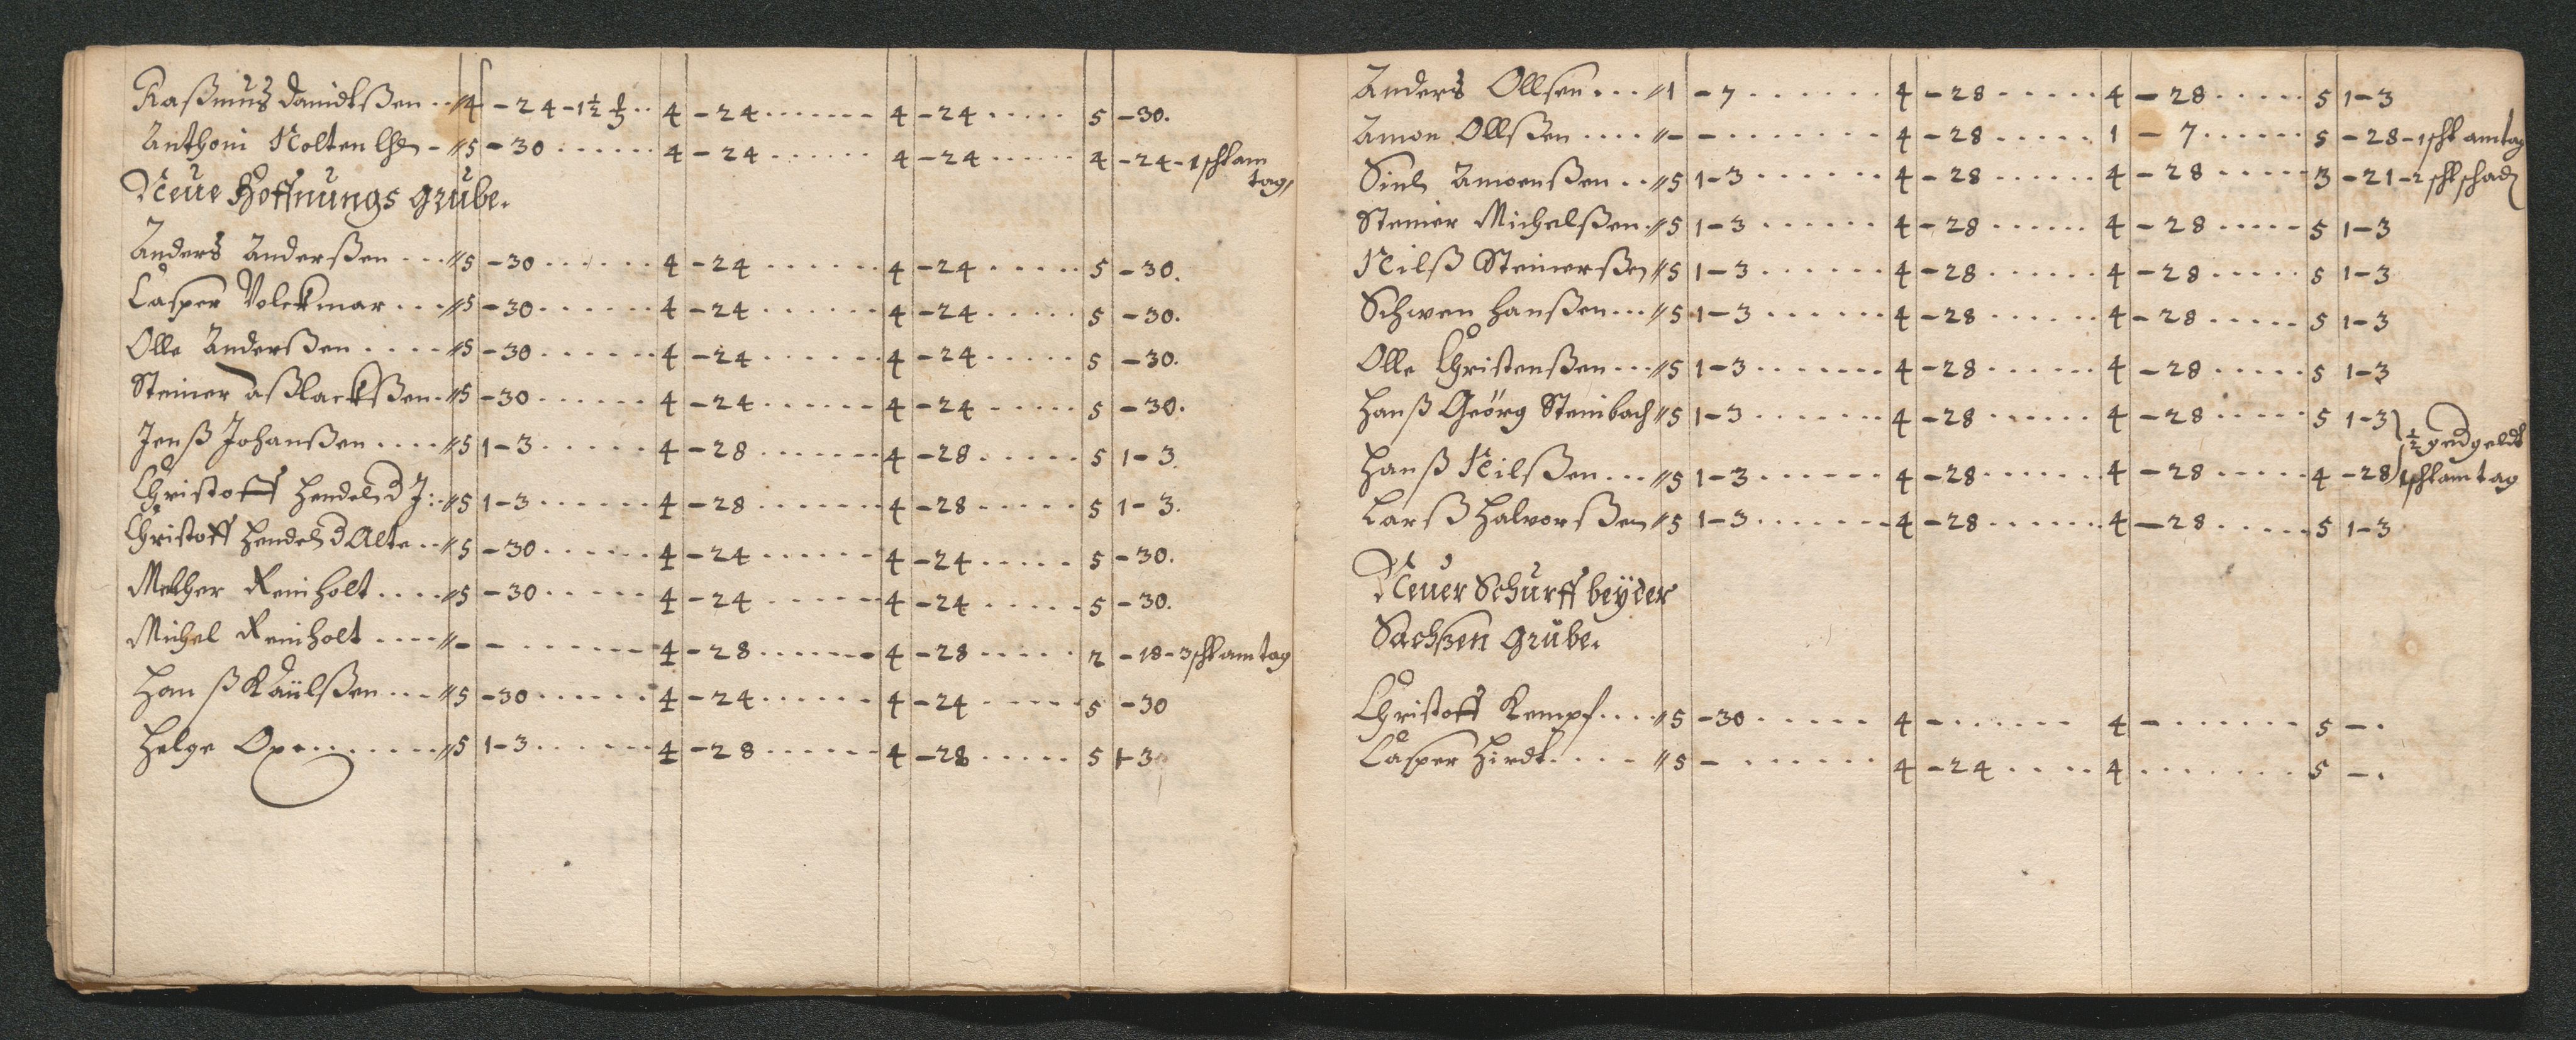 Raßmuß Davidtßen .. // 4 - 24 - 1½ ß .. 4 - 24 ....... 4 - 24 ..... 5 - 30.
Anthoni Nolten - // 5 - 30 ...... 4 - 24 ...... 4 - 24 ...... 4 - 24 - 1 schk am
tag,
Neue Hoffnungs grube.
Anders Anderßen ... // 5 - 30 ...... 4 - 24 ...... 4 - 24 ..... 5 - 30.
Casper Volckmar ... // 5 - 30 ...... 4 - 24 ...... 4 - 24 ..... 5 - 30.
Olle Anderßen .... // 5 - 30 ...... 4 - 24 ...... 4 - 24 ..... 5 - 30.
Steiner Aßlackßen . // 5 - 30 ...... 4 - 24 ....... 4 - 24 ..... 5 - 30.
Jenß Johanßen .... // 5 1 - 3 ..... 4 - 28 ....... 4 - 28 ..... 5 1 - 3.
Christoff Hendel d J: . // 5 1 - 3 ...... 4 - 28 ....... 4 - 28 ..... 5 1 - 3.
Christoff Hendel d Alte .. // 5 - 30 ...... 4 - 24 ...... 4 - 24 ..... 5 - 30.
Melcher Reinholt .... // 5 - 30 ..... 4 - 24 ...... 4 - 24 ..... 5 - 30.
Michel Reinholt .... // - - ....... 4 - 28 ...... 4 - 28 ..... 2 - 18 - 3 schk am tag
Hanß Käülßen ... // 5 - 30 ...... 4 - 24 ...... 4 - 24 ..... 5 - 30
Helge Oxe ....... // 5 1 - 3 ...... 4 - 28 ...... 4 - 28 ..... 5 1 - 3
Anders Ollsen ... // 1 - 7 ....... 4 - 28 ...... 4 - 28 ..... 5 1 - 3
Amon Ollßen .... // - - ........ 4 - 28 ..... 1 - 7 ...... 5 - 28 - 1 schk am tag
Amonßen .. // 5 1 - 3 ...... 4 - 28 ...... 4 - 28 ..... 3 - 21 - 2 schk schad
Steiner Michelßen . // 5 1 - 3 ...... 4 - 28 ...... 4 - 28 ..... 5 1 - 3
Nilß Steinerßen // 5 1 - 3 ...... 4 - 28 ...... 4 - 28 ..... 5 1 - 3
Schwen Hanßen ... // 5 1 - 3 ....... 4 - 28 ...... 4 - 28 ..... 5 1 - 3
Olle Christenßen ... // 5 1 - 3 ....... 4 - 28 ...... 4 - 28 ..... 5 1 - 3
Hanß Geörg Steinbach // 5 1 - 3 ...... 4 - 28 ...... 4 - 28 ..... 5 1 - 3
½ gedgeldt
Hanß Nilßen ... // 5 1 - 3 ...... 4 - 28 ...... 4 - 28 ..... 4 - 28 1 schk am tag
Larß Halvorßen // 5 1 - 3 ....... 4 - 28 ...... 4 - 28 ..... 5 1 - 3
Neuer Schurff beÿ der
Sachßen grube.
Christoff Kempf .... // 5 - 30 ...... 4 - ....... 4 - ....... 5 - .
Casper Hirdt .... // 5 - ....... 4 - 24 .... 4 ........ 5 - .